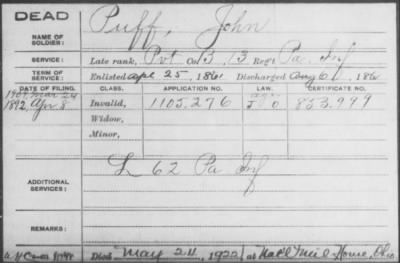 DEAD
NAME OF SOLDIER: Puff, John
SERVICE: Late rank, Pvt Co. B, 13 Reg't Pa. Inf
TERM OF SERVICE: Enlisted Apl 25, 1861 Discharged Aug 6, 1861
DATE OF FILING. CLASS. APPLICATION NO. LAW. CERTIFICATE NO.
1907, Mar 24 age
1892, Apr 8 Invalid, 1105,276 J O 853,999
Widow,
Minor,
ADDITIONAL SERVICES: L 62 Pa Inf
REMARKS:
Died May 24, 1922, at Nat'l Mil Home, Ohio